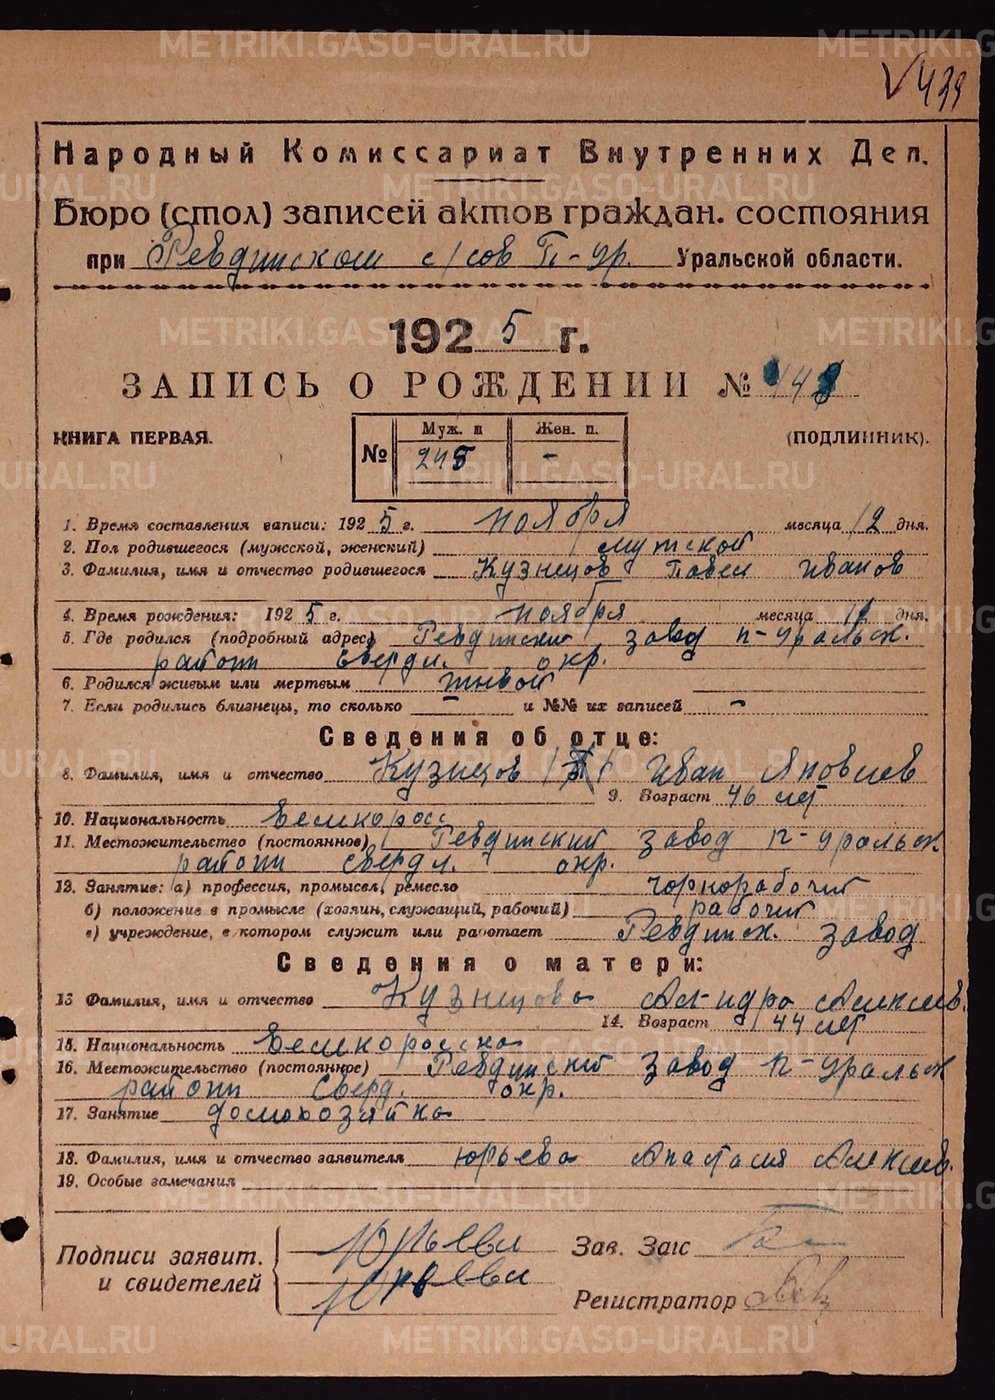 METRIKI.GASO-URAL.RU
V 439
Народный Комиссариат Внутренних Дел.
Бюро (стол) записей актов граждан. состояния
при Ревдинском с/сов П-Ур. Уральской области.
1925 г.
ЗАПИСЬ О РОЖДЕНИИ №
КНИГА ПЕРВАЯ.
(ПОДЛИННИК).
№ Муж. п Жен. п.
245 -
1. Время составления записи: 1925 г. ноября месяца 12 дня.
2. Пол родившегося (мужской, женский) мужской
3. Фамилия, имя и отчество родившегося Кузнецов Павел Иванов
4. Время рождения: 1925 г. ноября месяца 11 дня.
5. Где родился (подробный адрес) Ревдинский завод П-Уральск.
района Свердл. окр.
6. Родился живым или мертвым живой
7. Если родились близнецы, то сколько - и №№ их записей -
Сведения об отце:
8. Фамилия, имя и отчество Кузнецов Иван Яковлев
9. Возраст 46 лет
10. Национальность великоросс
11. Местожительство (постоянное) Ревдинский завод П-Уральск
района Свердл. окр.
12. Занятие: а) профессия, промысел, ремесло чорнорабочий
б) положение в промысле (хозяин, служащий, рабочий) рабочий
в) учреждение, в котором служит или работает Ревдинск. завод
Сведения о матери:
13 Фамилия, имя и отчество Кузнецова Ал-ндра Алексеев.
14. Возраст 44 лет
15. Национальность великоросска
16. Местожительство (постоянное) Ревдинский завод П-Уральск
района Сверд. окр.
17. Занятие домохозяйка
18. Фамилия, имя и отчество заявителя Юрьева Анастасия Алексеев.
19. Особые замечания
Подписи заявит. и свидетелей
Юрьева
Юрьева
Зав. Загс
Регистратор